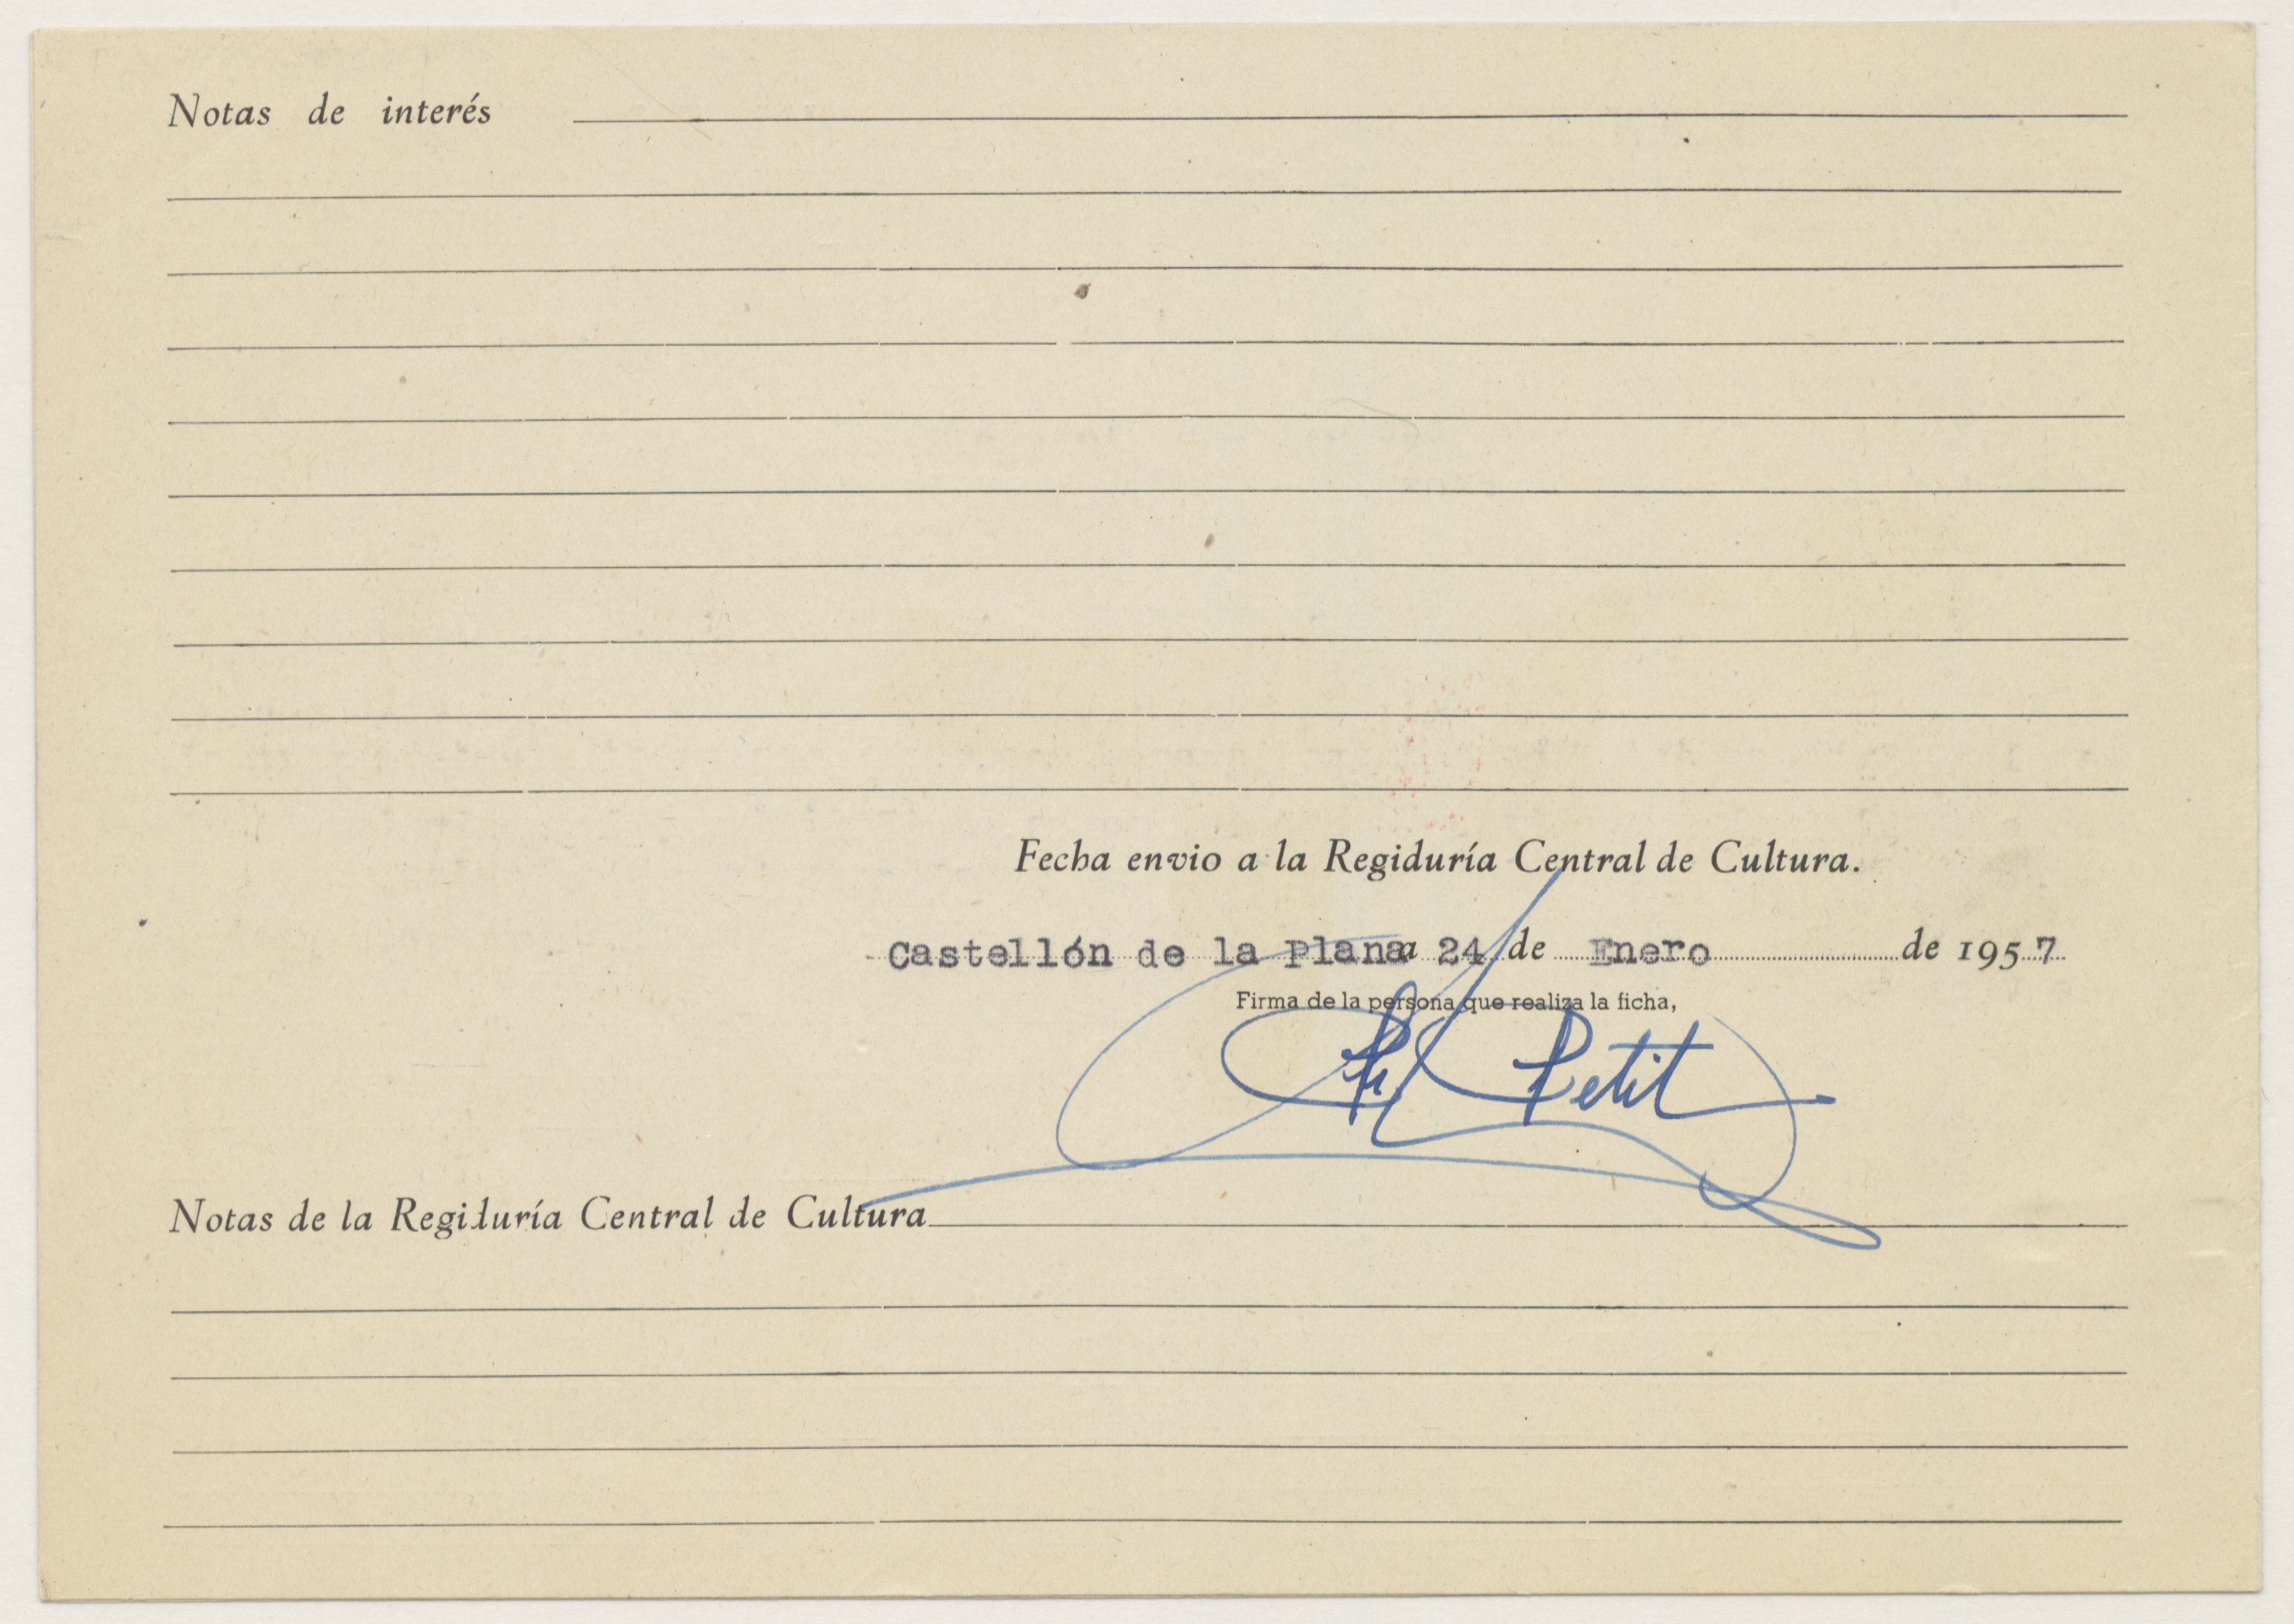 Notas de interés
Fecha envio a la Regiduría Central de Cultura.
Castellón de la Plana a 24 de Enero de 1957
Firma de la persona que realiza la ficha,
Petit
Notas de la Regiduría Central de Cultura